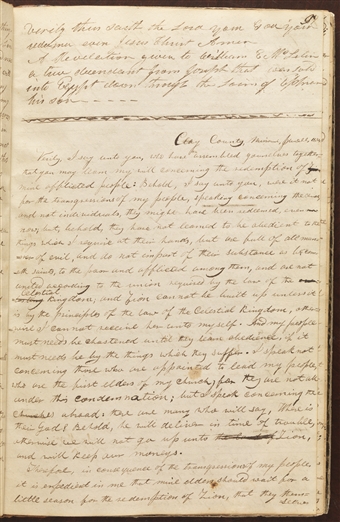 Verily thus saith the Lord your God your
redeemer even Jesus Christ Amen
A Revelation given to William E. McLelin
a true descendant from Joseph that was sold
into Egypt down through the loins of Ephraim
his son
Clay County, Missouri,
Verily, I say unto you, who have assembled yourselves together
that you may learn my will concerning the redemption of
mine afflicted people: Behold, I say unto you, were it not
for the transgressions of my people, speaking concerning the church
and not individuals, they might have been redeemed, even
now; but, behold they have not learned to be obedient to the
things which I require at their hands, but are full of all man-
ner of evil, and do not impart of their substance as becometh
saints, to the poor and afflicted among them, and are not
united according to the union required by the law of the
celestial
kingdom; and Zion cannot be built up unless it
is by the principles of the law of the Celestial kingdom, other-
wise I can not receive her unto myself. And my people
must needs be chastened until they learn obedience, if it
must needs be by the things which they suffer. I speak not
concerning those who are appointed to lead my people,
who are the first elders of my church, for they are not all
under this condemnation; but I speak concerning the
churches abroad: there are many who will say, Where is
their God? Behold, he will deliver in time of trouble;
otherwise we will not go up unto Zion,
and will keep our moneys.
Therefore, in consequence of the transgression of my people,
it is expedient in me that mine elders should wait for a
little season for the redemption of Zion, that they themselves